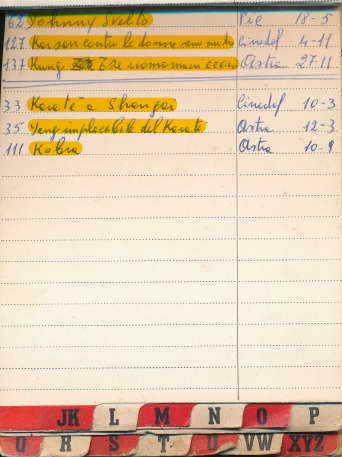 62 Johnny Svelto Pic 18-5
127 Karzan contro le donne seno nudo Cinedof 4-11
137 Kung Astra 27-11
33 Karatè a Shangai Cinedof 10-3
35 Yang implacabile del Karatè Astra 12-3
111 Kobra Astra 10-9
JK L M N O P
Q R S T U VW XYZ